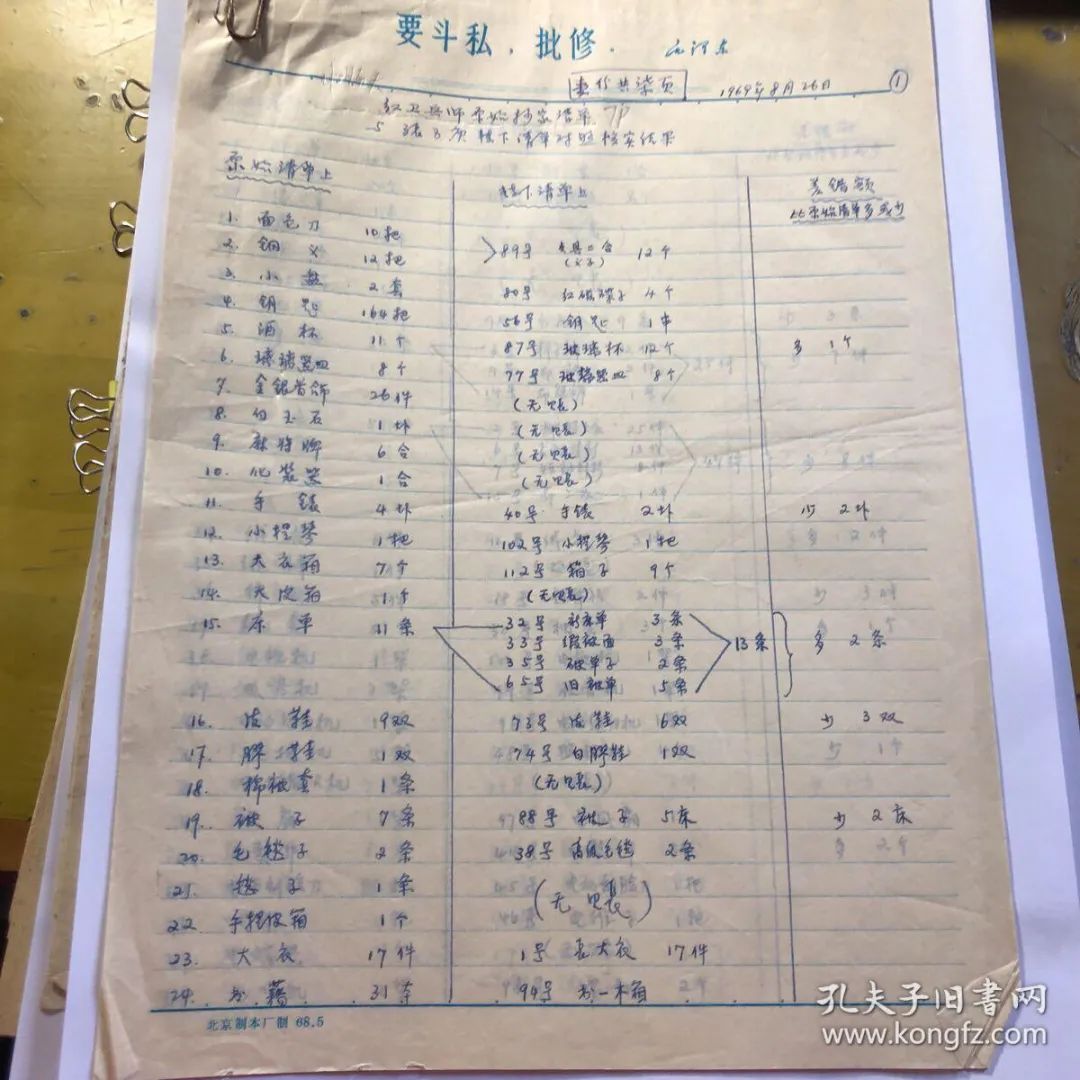 要斗私，批修． 毛泽东
壹份共柒页 1969年8月26日 ①
红卫兵师原始抄家清单
与 3页楼下清单对照核实结果
原始清单上 楼下清单上 差错额
比原始清单多或少
1. 面包刀 10把
2. 钢叉 12把 89号 食具二合(叉子) 12个
3. 小盘 2套 80号 红磁碟子 4个
4. 钥匙 164把 56号 钥匙 1串
5. 酒杯 11个 87号 玻璃杯 12个 多 1个
6. 玻璃器皿 8个 77号 玻璃器皿 8个
7. 金银首饰 26件 (无账)
8. 白玉石 1块 (无账)
9. 麻将牌 6合 (无账)
10. 化装器 1合 (无账)
11. 手錶 4块 40号 手錶 2块 少 2块
12. 小提琴 1把 102号 小提琴 1把
13. 大衣箱 7个 112号 箱子 9个
14. 铁皮箱 1个 (无账)
15. 床单 11条 32号 新床单 3条
33号 缎被面 3条 13条 多 2条
35号 被单子 2条
65号 旧被单 5条
16. 皮鞋 19双 73号 皮鞋 16双 少 3双
17. 胶鞋 1双 74号 白胶鞋 1双
18. 棉被套 1条 (无账)
19. 被子 7条 88号 被子 5床 少 2床
20. 毛毯子 2条 38号 高级毛毯 2条
21. 毯子 1条 (无账)
22. 手提皮箱 1个
23. 大衣 17件 1号 长大衣 17件
24. 书籍 31本 94号 书一木箱
北京制本厂制 68.5
孔夫子旧书网
www.kongfz.com